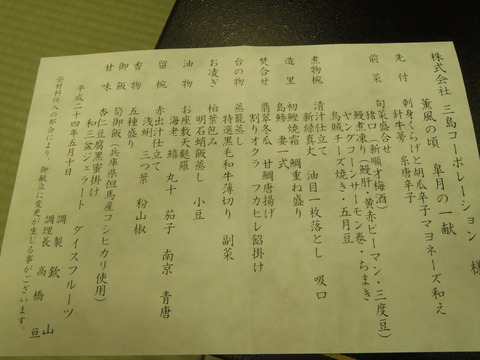 株式会社 三島コーポレーション 様
薫風の頃 皐月の一献
先付 刺身くらげと胡瓜辛子マヨネーズ和え
針牛蒡 糸唐辛子
前菜 旬菜盛合せ
猪口(新順才梅酒)
鰻煮凍り(鰻肝・黄赤ピーマン・三度豆)
ヤングサーモン巻・ちまき
烏賊チーズ焼き・五月豆
煮物椀 清汁仕立て
新緑真丈 油目一枚落とし 吸口
造里 初鰹焼霜 鯛重ね盛り
烏鯵 妻一式
焚合せ 翡翠冬瓜 甘鯛唐揚げ
割りオクラ フカヒレ餡掛け
台の物 蒸籠蒸し
特選黒毛和牛薄切り 副菜
お凌ぎ 柏葉包み
明石蛸飯蒸し 小豆
油物 お座敷天麩羅
海老 鱚 丸十 茄子 南京 青唐
留椀 赤出汁仕立て
浅蜊 三つ葉 粉山椒
香物 五種盛り
御飯 筍御飯(兵庫県但馬産コシヒカリ使用)
甘味 杏仁豆腐黒蜜掛け
和三盆ジェラート ダイスフルーツ
平成二十四年五月十日
調製 欽山
調理長 高橋 亘
※材料仕入の都合により、御献立に変更が生じる事がございます。